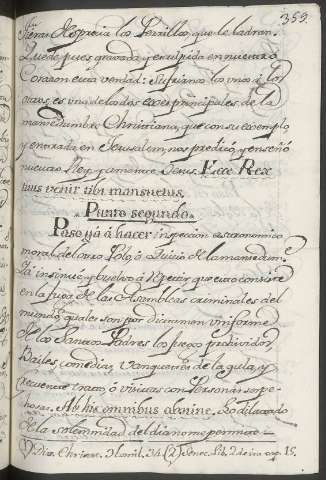 359.
fieras. Desprecia los Perrillos que le ladran.
Quede pues gravada, y esculpida en nuestro
Corazon esta verdad: Sufrirnos los unos á los
otros, es una de las dos exes principales de la
mansedumbre Christiana, que con su exemplo,
y entrada en Jerusalem, nos predicó, y enseñó
nuestro Rey, y amante Jesus. Ecce Rex
tuus venit tibi mansuetus.
Punto segundo.
Paso yá á hacer inspeccion astronomica
moral del otro Polo, ó Quicio de la mansedumbre.
La insinué, y buelvo á repetir, que esta consiste
en la fuga de las Asambleas criminales del
mundo, quales son por dictamen uniforme
de los Santos Padres los juegos prohividos,
Bailes, comedias, vanquetes de la gula, y
frecuente trato, ó visitas con Personas sospe-
chosas. Ab his omnibus abstine. Lo dilatado
de la solemnidad del dia no me permite
(1) Div. Chrisost. Homil. 34. (2) Senec. Lib. 2 de ira cap. 15.